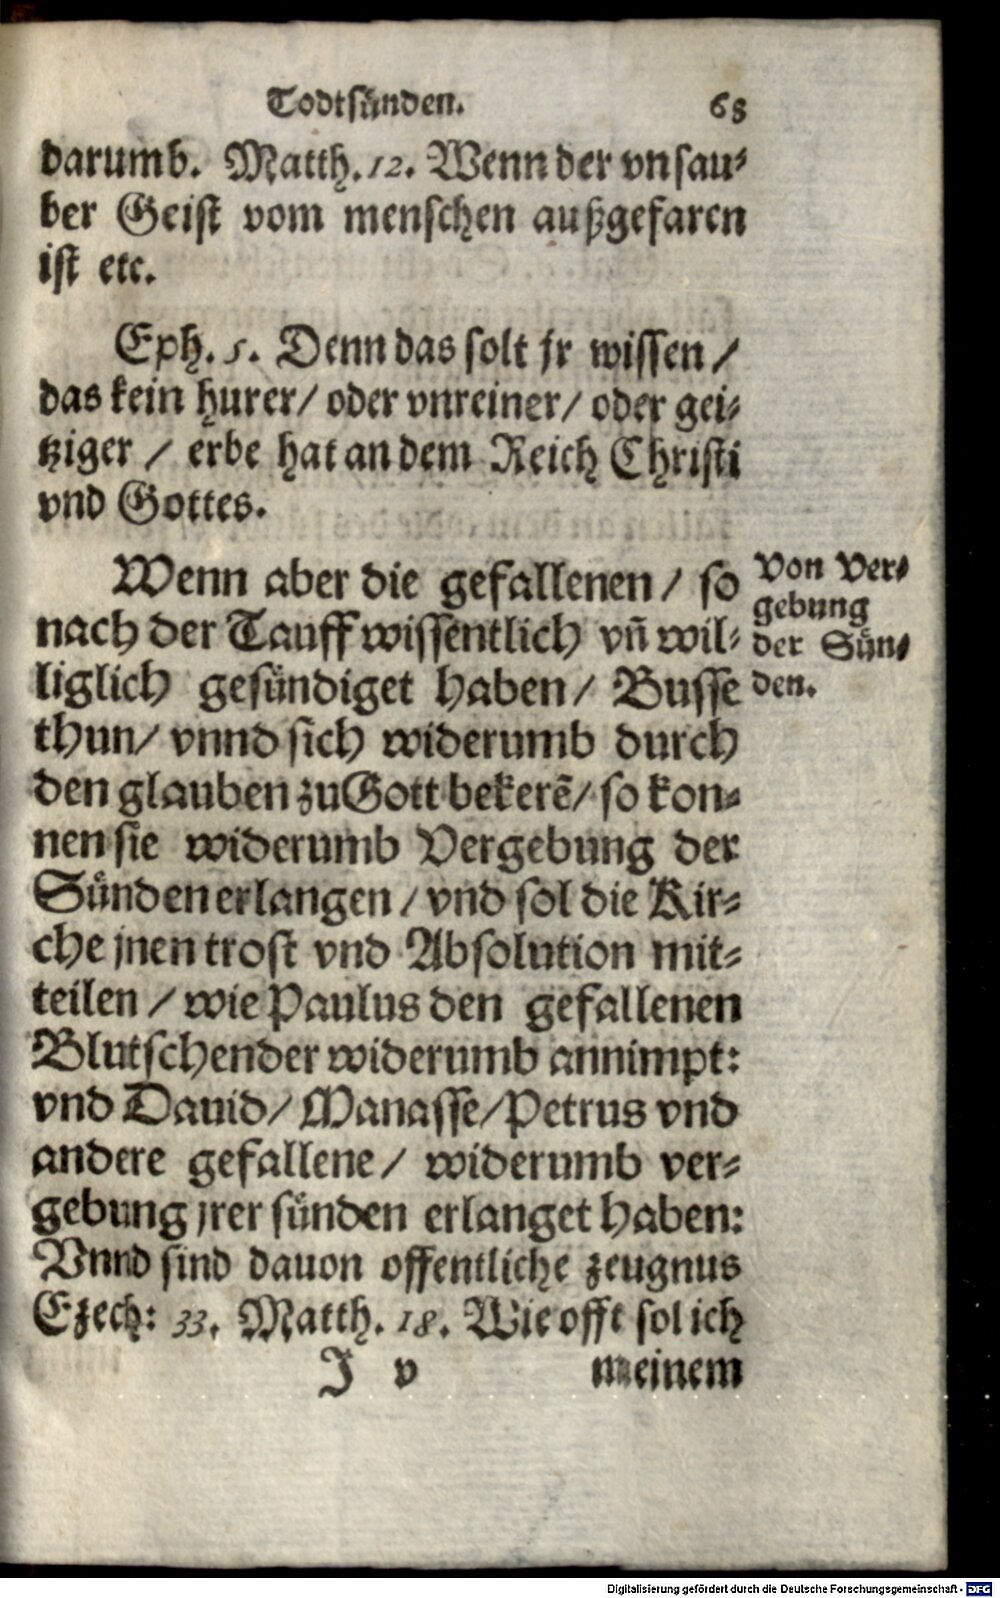 Todtsünden. 68
darumb. Matth. 12. Wenn der vnsau⸗
ber Geist vom menschen außgefaren
ist etc.
Eph. 5. Denn das solt jr wissen /
das kein hurer / oder vnreiner / oder gei⸗
tziger / erbe hat an dem Reich Christi
vnd Gottes.
Wenn aber die gefallenen / so
nach der Tauff wissentlich vñ wil⸗
liglich gesündiget haben / Busse
thun / vnnd sich widerumb durch
den glauben zu Gott bekerẽ / so kon⸗
nen sie widerumb Vergebung der
Sünden erlangen / vnd sol die Kir⸗
che jnen trost vnd Absolution mit⸗
teilen / wie Paulus den gefallenen
Blutschender widerumb annimpt:
vnd Dauid / Manasse / Petrus vnd
andere gefallene / widerumb ver⸗
gebung jrer sünden erlanget haben:
Vnnd sind dauon offentliche zeugnus
Ezech: 33. Matth. 18. Wie offt sol ich
J v meinem
Von Ver⸗
gebung
der Sün⸗
den.
Digitalisierung gefördert durch die Deutsche Forschungsgemeinschaft - DFG